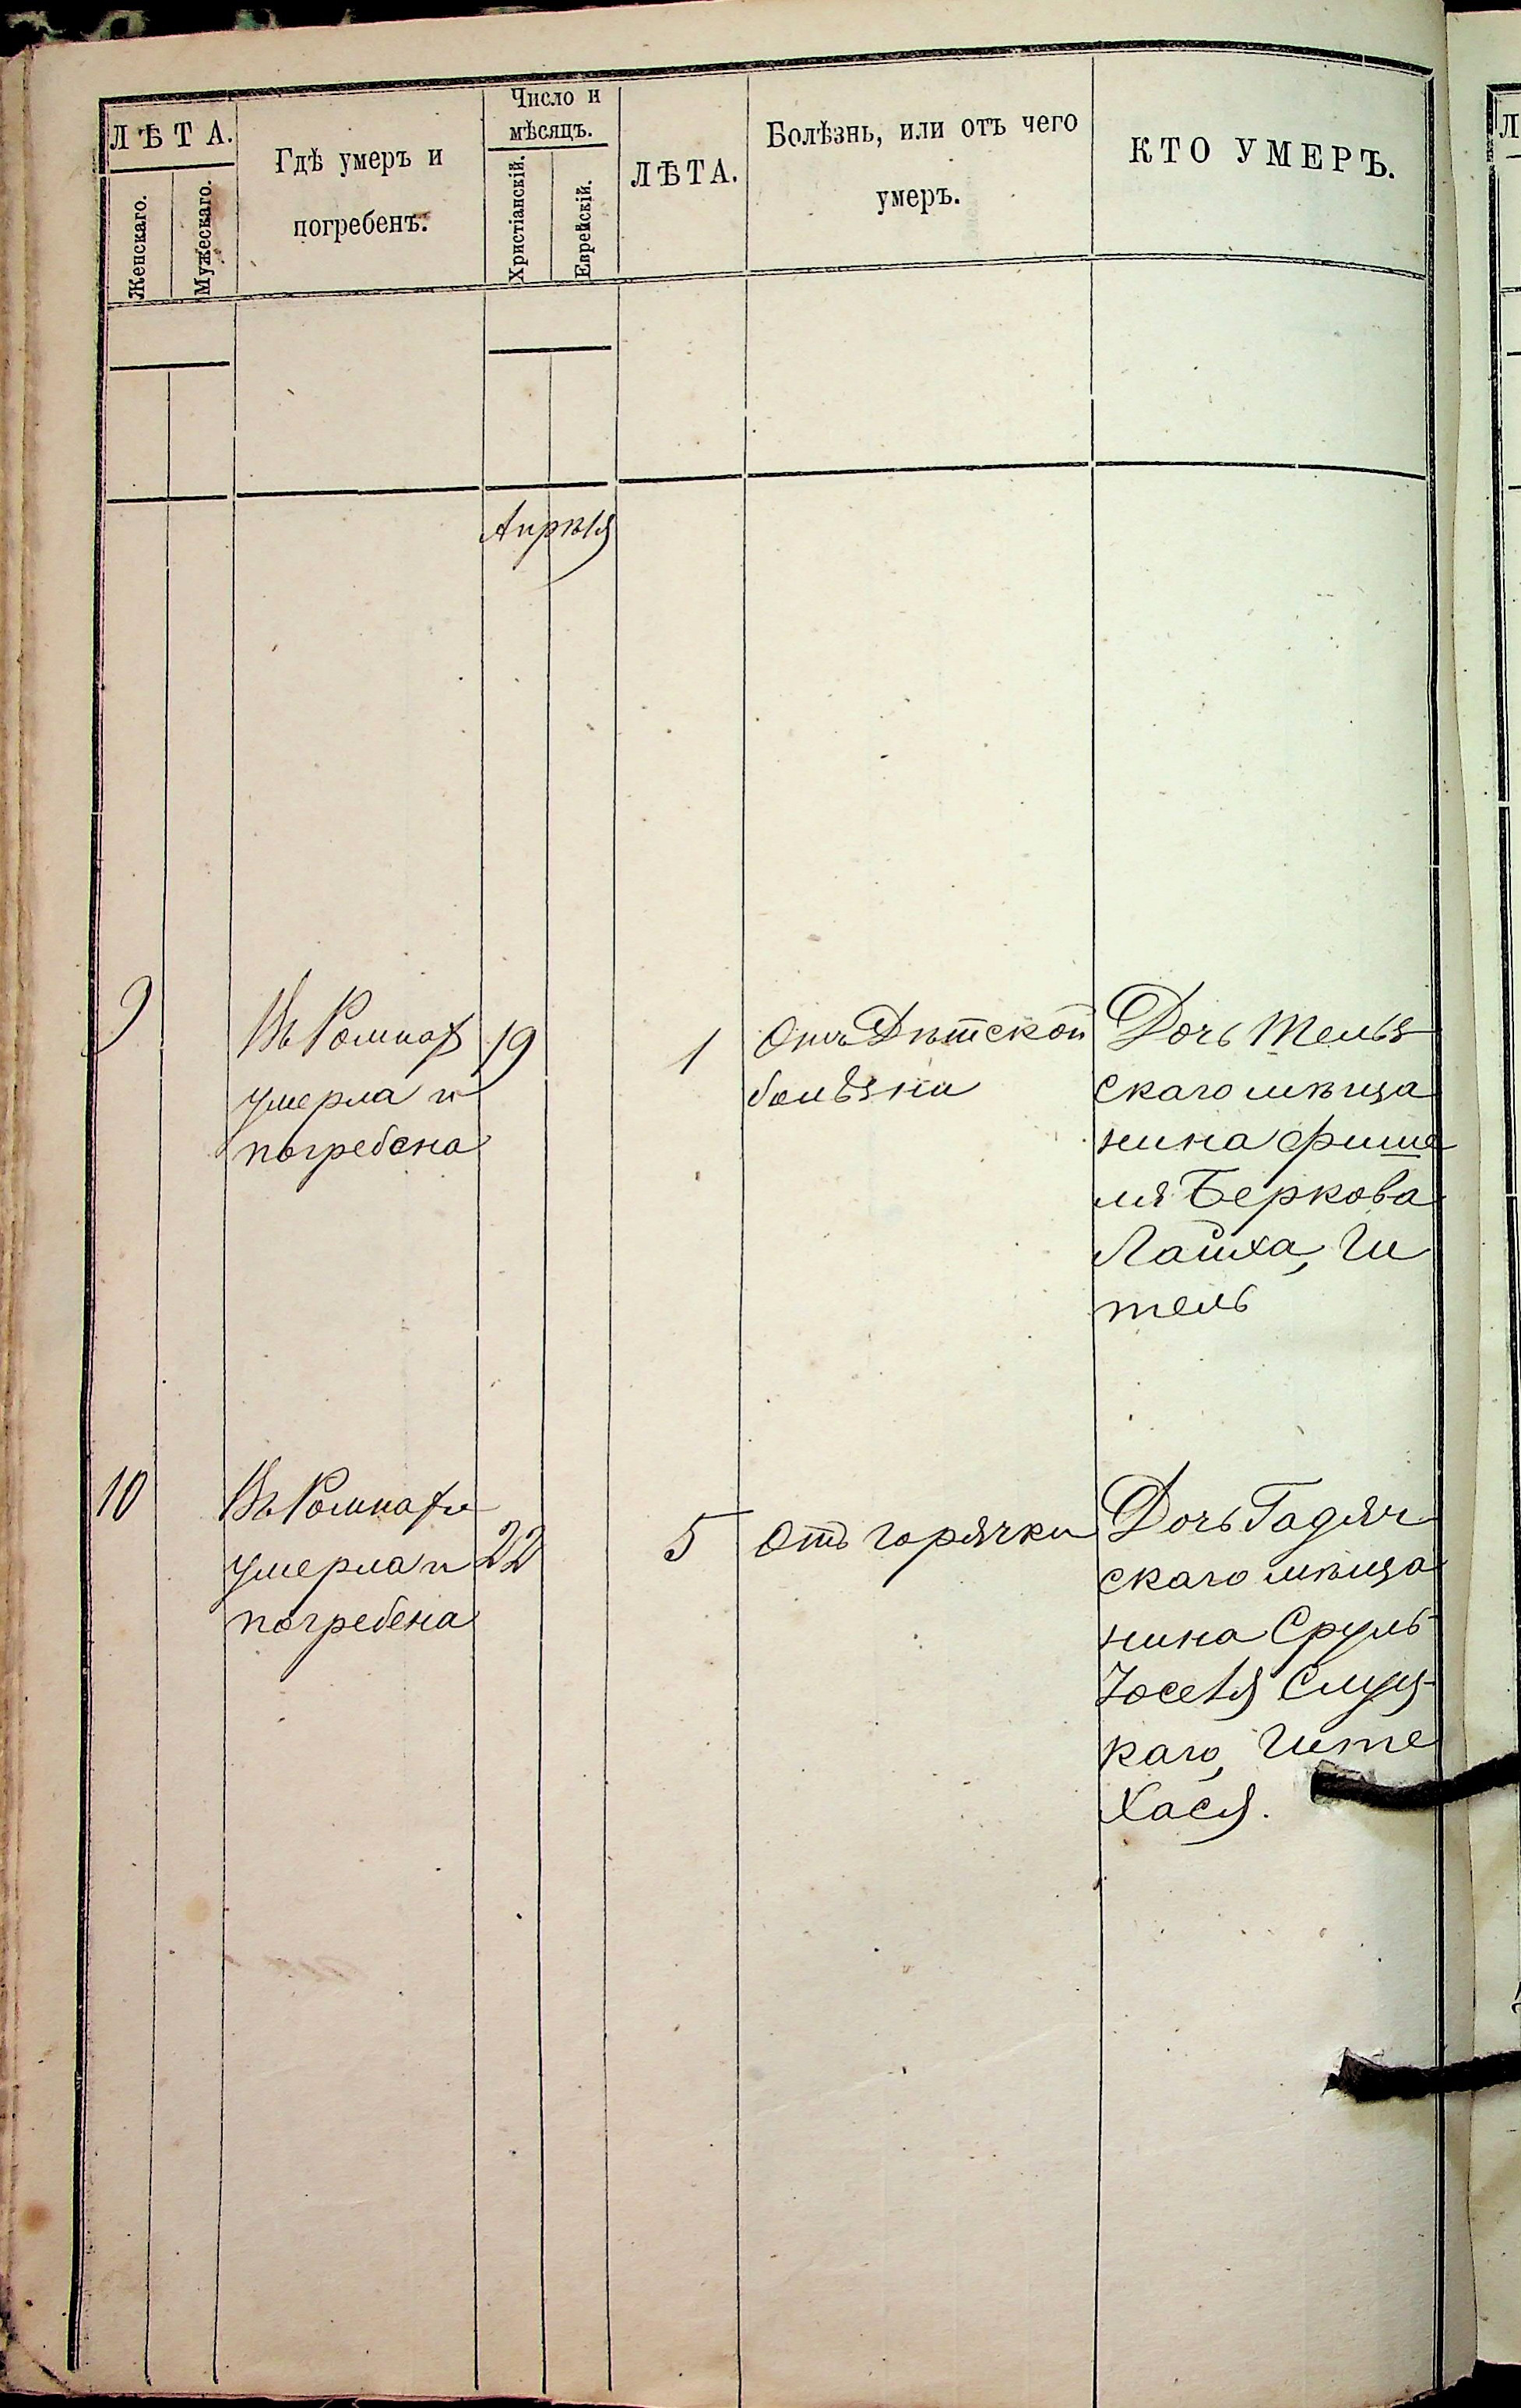 ЛѢТА.
Женскаго.
Мужескаго.
Гдѣ умеръ и
погребенъ.
Число и
мѣсяцъ.
Христіанскій.
Еврейскій.
ЛѢТА.
Болѣзнь, или отъ чего
умеръ.
КТО УМЕРЪ.
Апрѣля
9
Въ Ромнах
умерла и
погребена
19
1
Отъ Дѣтской
болѣзни
Дочь Тельз
скаго мѣща
нина Фише
ля Беркова
Лайха, Ги
тель
10
Въ Ромнахъ
умерла и
погребена
22
5
Отъ горячки
Дочь Гадяч
скаго мѣща
нина Сруль
Іоселя Слуц-
каго, Гите
Хася.